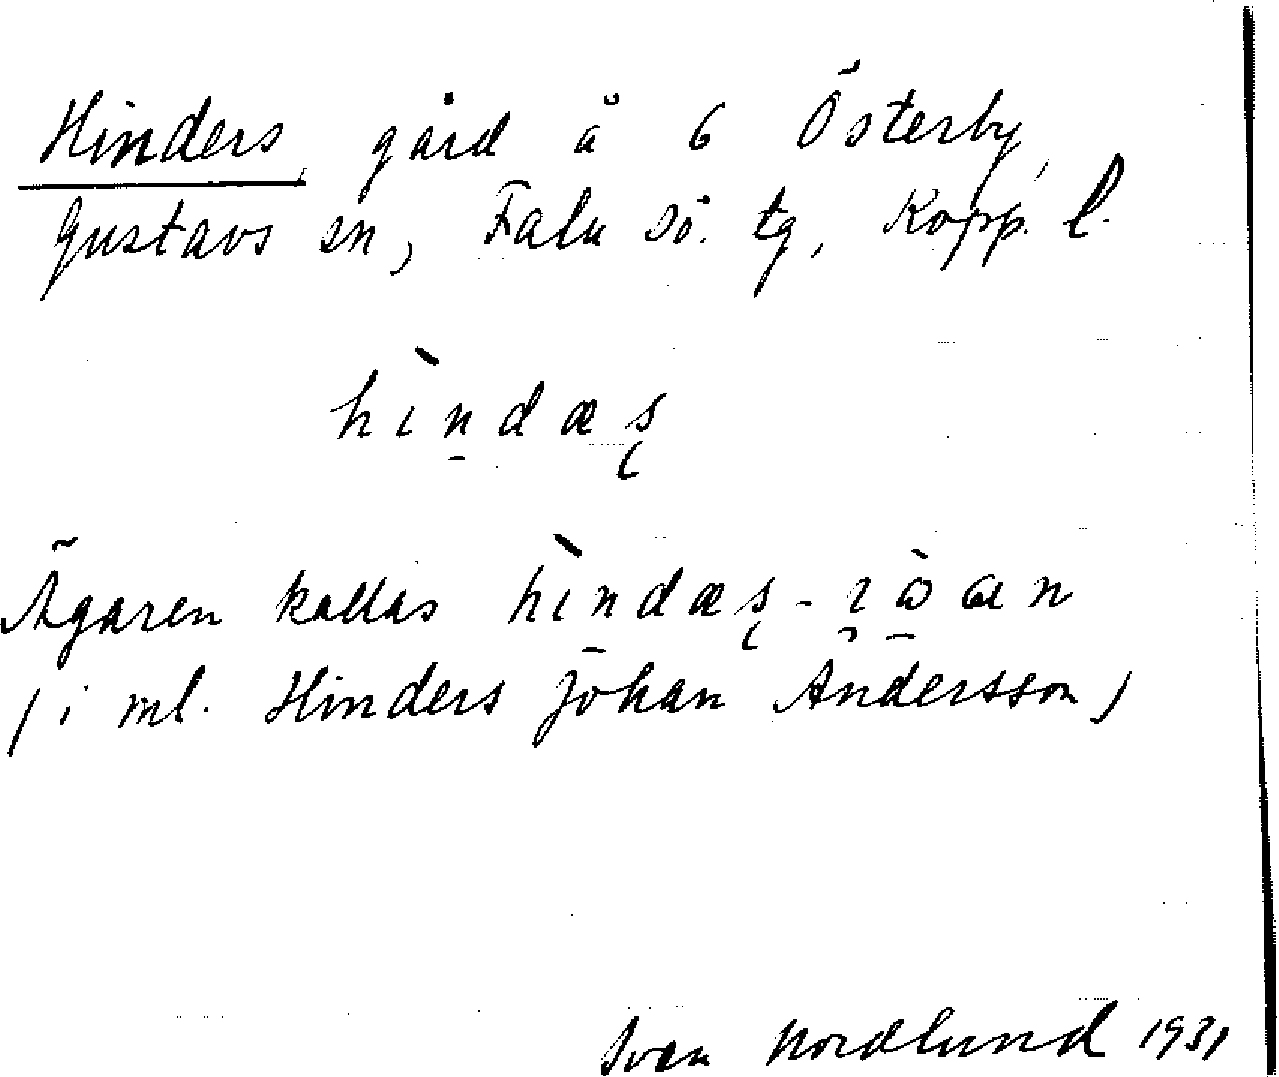 Hinders, gård å 6 Österby,
Gustavs sn, Falu sö. tg, Kopp. l.
hìn̠dæş
Ägaren kallas hìndæş-
(i ml. Hinders Johan Andersson)
Sven Nordlund 1931